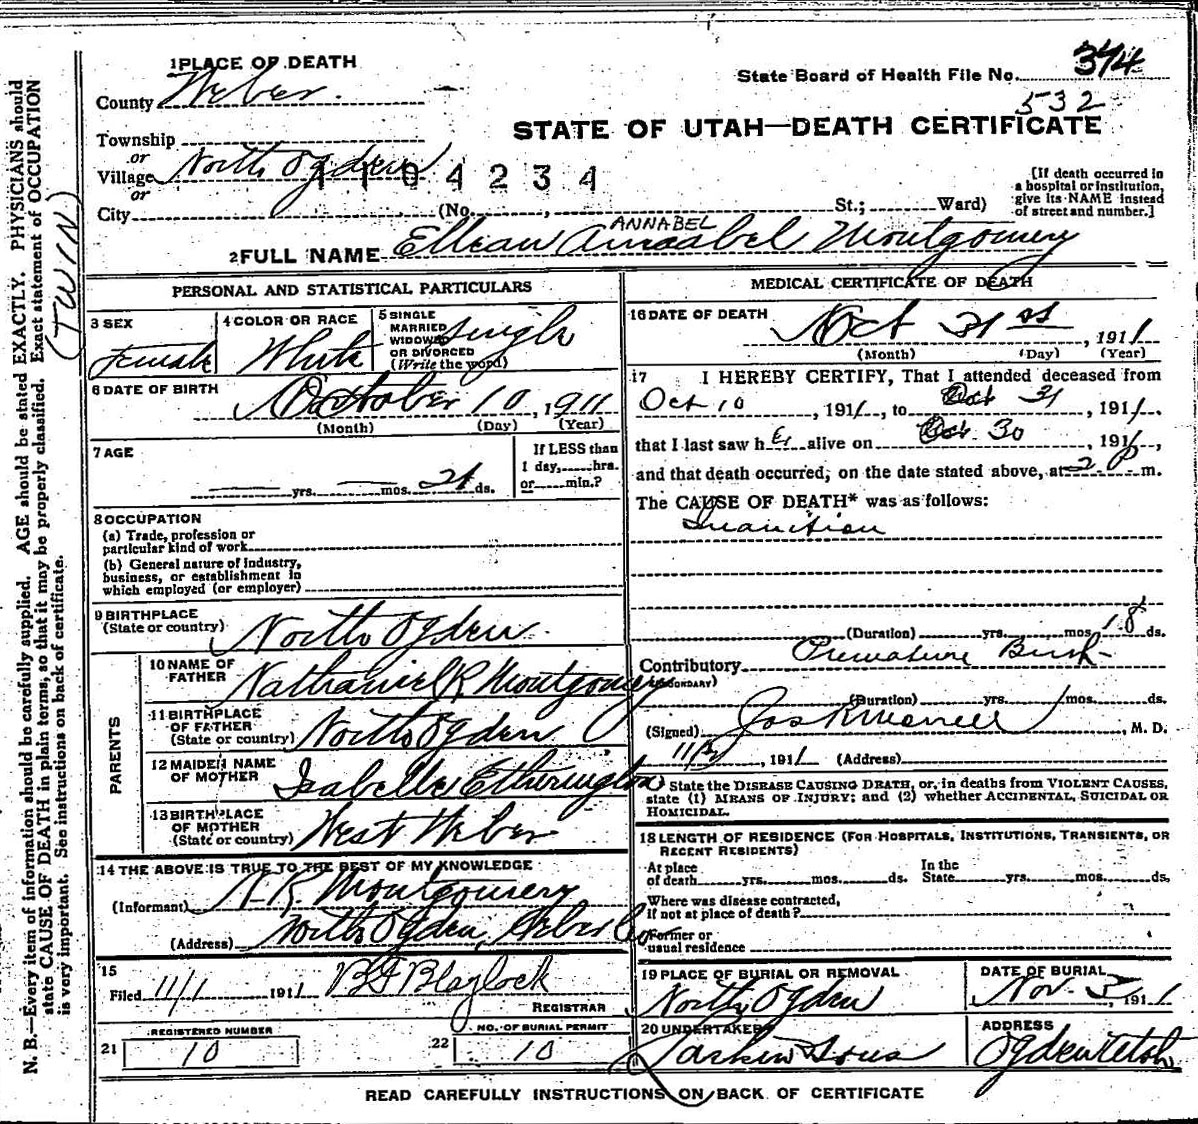 1 PLACE OF DEATH
County Weber.
Township
or
Village North Ogden
or
City (No. , St.; Ward)
1104234
State Board of Health File No. 374
532
STATE OF UTAH—DEATH CERTIFICATE
[If death occurred in
a hospital or institution,
give its NAME instead
of street and number.]
ANNABEL
2 FULL NAME Annabel Montgomery
PERSONAL AND STATISTICAL PARTICULARS
3 SEX
Female
4 COLOR OR RACE
White
5 SINGLE
MARRIED
WIDOWED
OR DIVORCED
(Write the word)
Single
6 DATE OF BIRTH
October 10, 1911
(Month) (Day) (Year)
7 AGE
yrs. mos. 21 ds.
If LESS than
1 day, hrs.
or min.?
8 OCCUPATION
(a) Trade, profession or
particular kind of work
(b) General nature of industry,
business, or establishment in
which employed (or employer)
9 BIRTHPLACE
(State or country) North Ogden.
PARENTS
10 NAME OF
FATHER Nathaniel R Montgomery
11 BIRTHPLACE
OF FATHER
(State or country) North Ogden
12 MAIDEN NAME
OF MOTHER Isabelle Etherington
13 BIRTHPLACE
OF MOTHER
(State or country) West Weber
14 THE ABOVE IS TRUE TO THE BEST OF MY KNOWLEDGE
(Informant) N. R. Montgomery
(Address) North Ogden, Weber Co
15
Filed 11/1 1911 B F Blaylock
REGISTRAR
REGISTERED NUMBER
21 10
NO. OF BURIAL PERMIT
22 10
MEDICAL CERTIFICATE OF DEATH
16 DATE OF DEATH
Oct 31st, 1911
(Month) (Day) (Year)
17 I HEREBY CERTIFY, That I attended deceased from
Oct 10, 1911, to Oct 31, 1911.
that I last saw her alive on Oct. 30, 1911,
and that death occurred, on the date stated above, at 2 P m.
The CAUSE OF DEATH* was as follows:
Inanition
(Duration) yrs. mos. 18 ds.
Contributory Premature Birth
(SECONDARY)
(Duration) yrs. mos. ds.
(Signed) , M. D.
, 1911 (Address)
State the DISEASE CAUSING DEATH, or, in deaths from VIOLENT CAUSES,
state (1) MEANS OF INJURY; and (2) whether ACCIDENTAL, SUICIDAL OR
HOMICIDAL.
18 LENGTH OF RESIDENCE (FOR HOSPITALS, INSTITUTIONS, TRANSIENTS, OR
RECENT RESIDENTS)
At place
of death yrs. mos. ds.
In the
State yrs. mos. ds.
Where was disease contracted,
if not at place of death?
Former or
usual residence
19 PLACE OF BURIAL OR REMOVAL
North Ogden
DATE OF BURIAL
Nov. 3, 1911
20 UNDERTAKER
Larkin & Sons
ADDRESS
Ogden Utah
READ CAREFULLY INSTRUCTIONS ON BACK OF CERTIFICATE
N. B.—Every item of information should be carefully supplied. AGE should be stated EXACTLY. PHYSICIANS should
state CAUSE OF DEATH in plain terms, so that it may be properly classified. Exact statement of OCCUPATION
is very important. See instructions on back of certificate.
(TWIN)